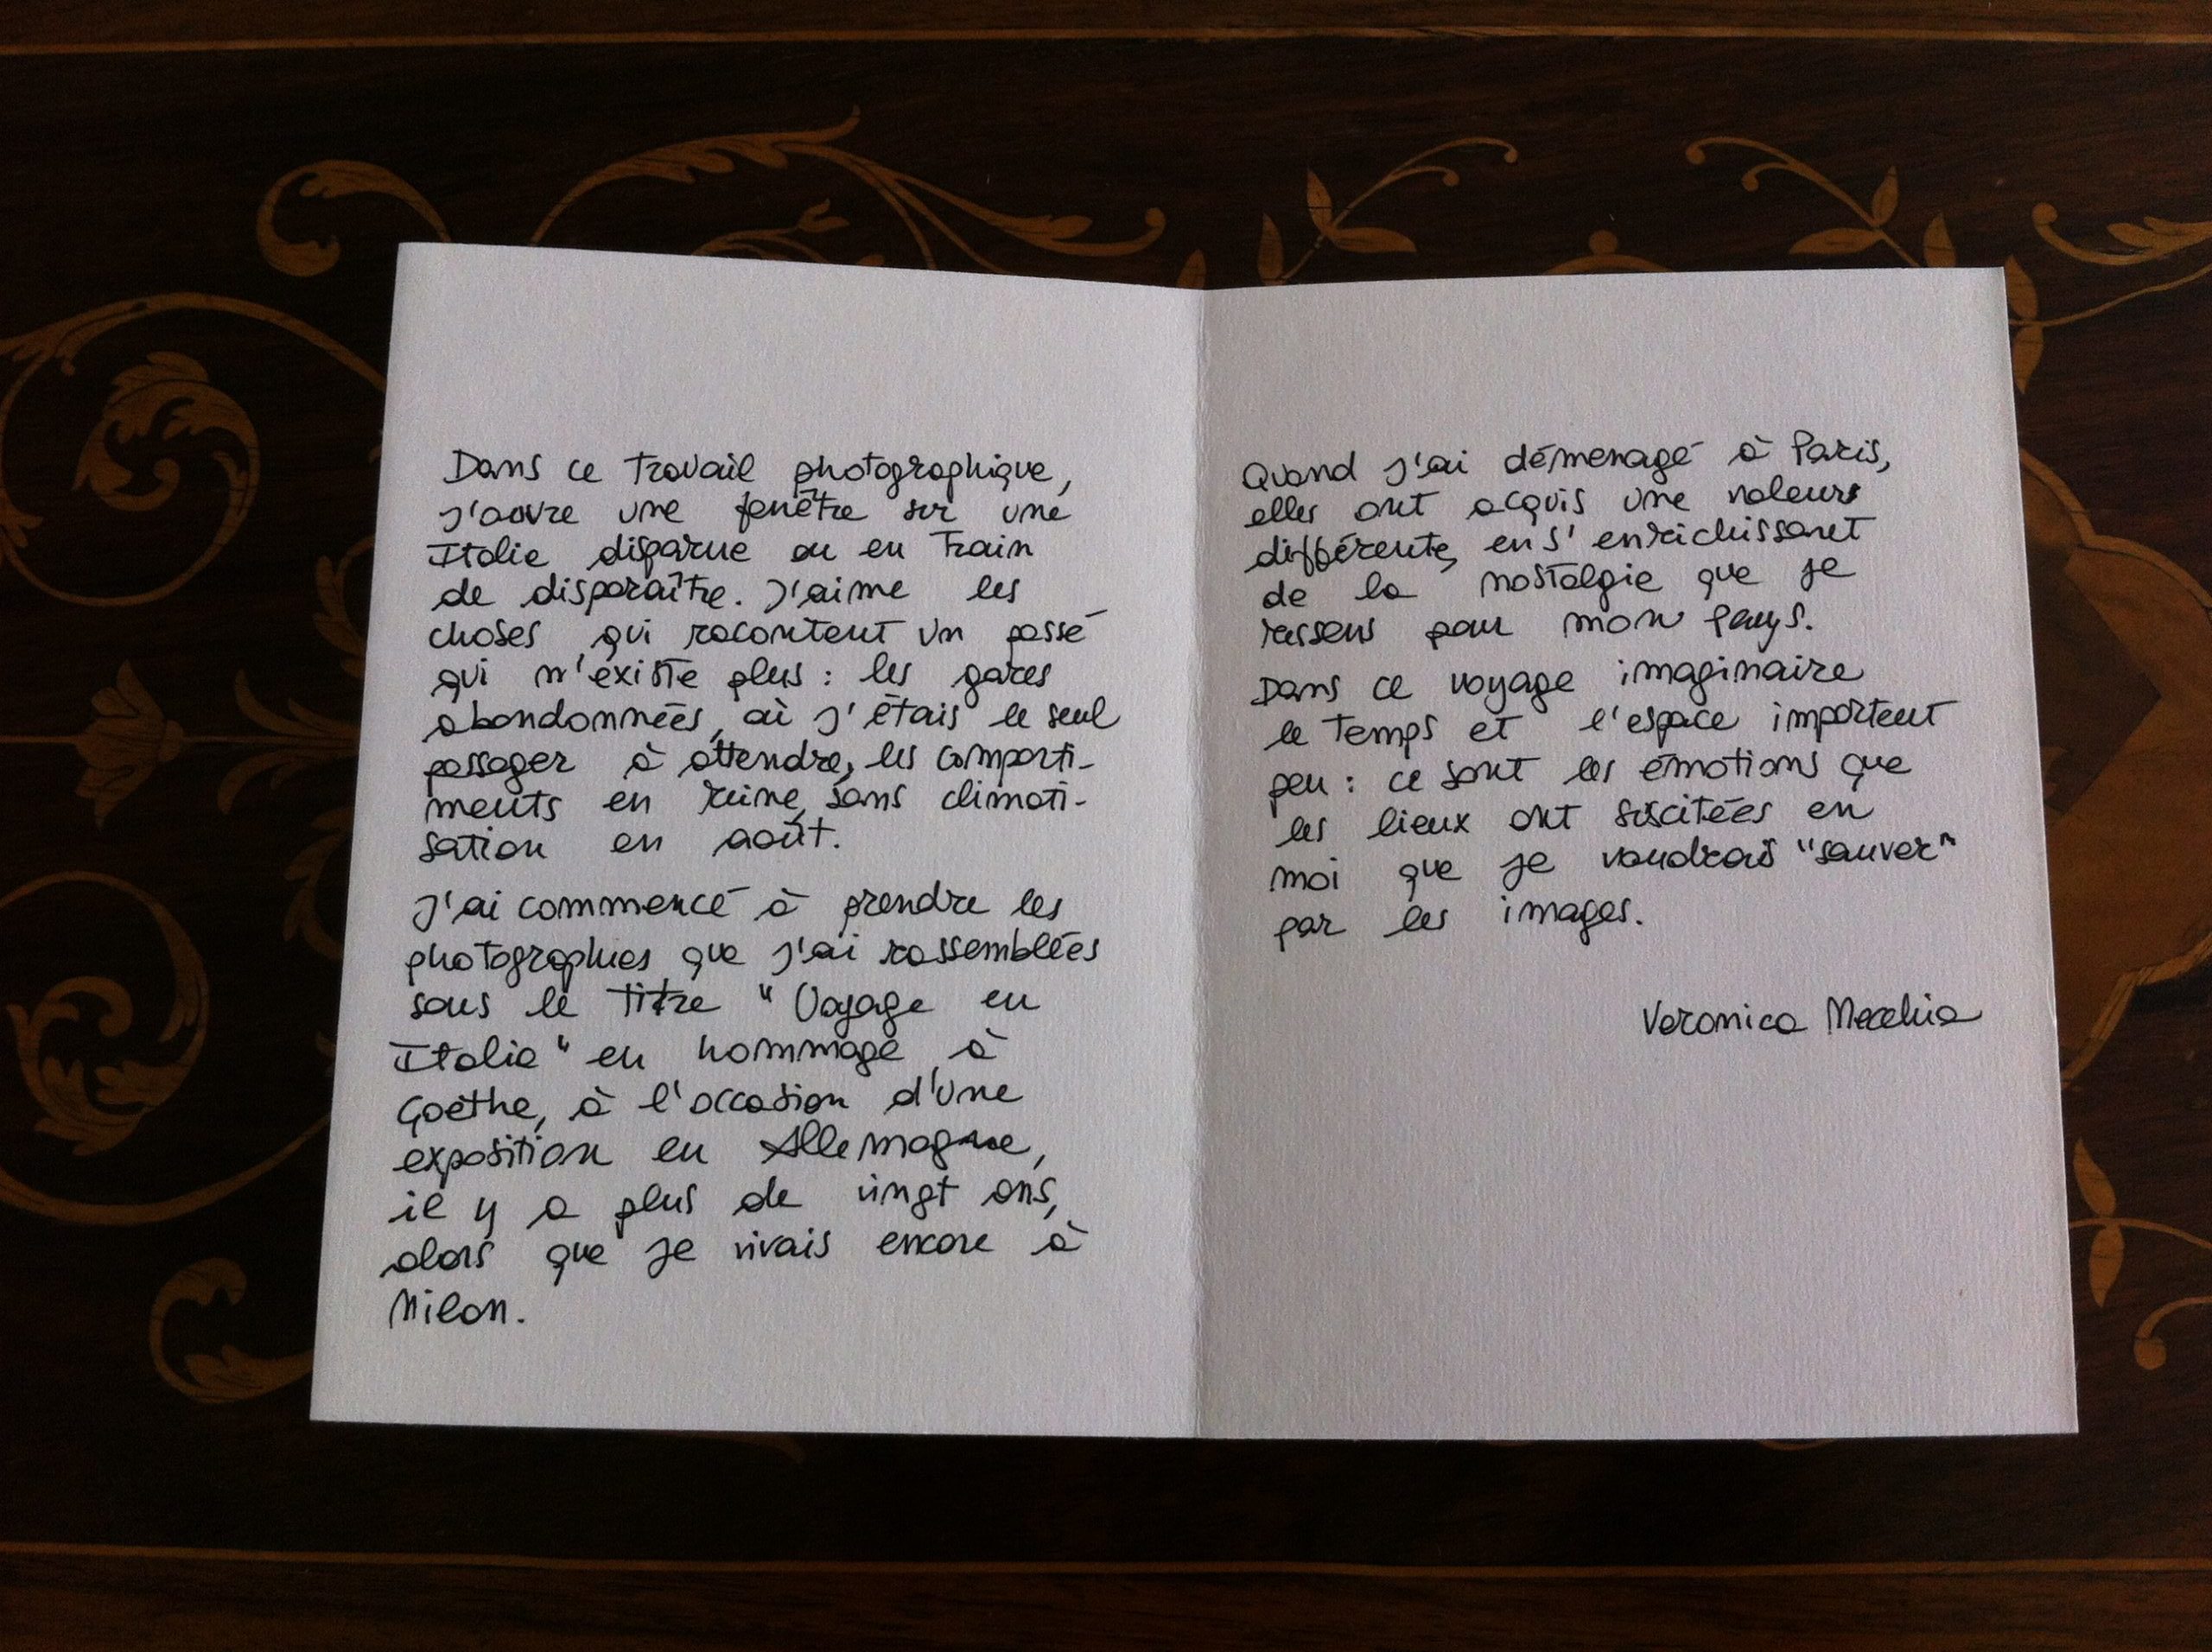 Dans ce travail photographique,
j'ouvre une fenêtre sur une
Italie disparue ou en train
de disparaître. J'aime les
choses qui racontent un passé
qui n'existe plus : les gares
abandonnées, où j'étais le seul
passager à attendre, les comparti-
ments en ruine, sans climati-
sation en août.
J'ai commencé à prendre les
photographies que j'ai rassemblées
sous le titre "Voyage en
Italie" en hommage à
Goethe, à l'occasion d'une
exposition en Allemagne,
il y a plus de vingt ans,
alors que je vivais encore à
Milan.
Quand j'ai démenagé à Paris,
elles ont acquis une valeur
différente, en s'enrichissant
de la nostalgie que je
ressens pour mon pays.
Dans ce voyage imaginaire
le temps et l'espace importent
peu : ce sont les émotions que
les lieux ont suscitées en
moi que je voudrais "sauver"
par les images.
Veronica Mecchia